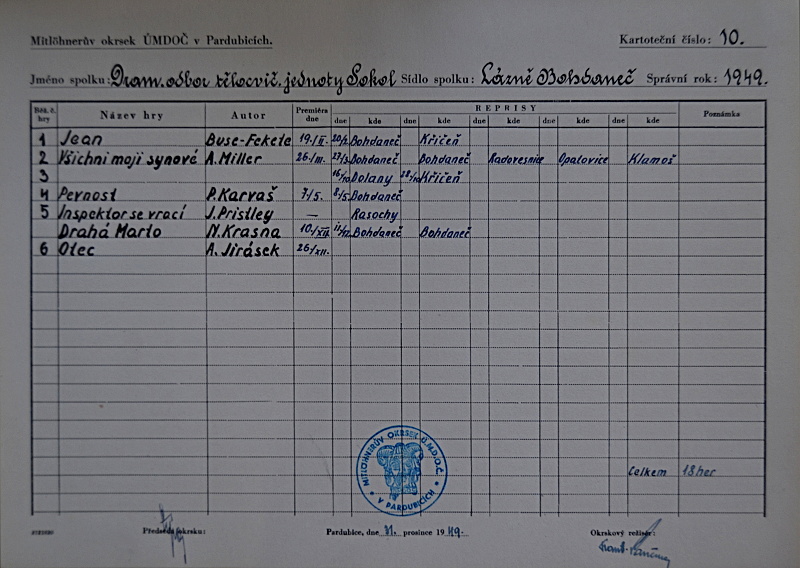 Mitlöhnerův okrsek ÚMDOČ v Pardubicích. Kartoteční číslo: 10.
Jméno spolku: Dram. odbor tělocvič. jednoty Sokol Sídlo spolku: Lázně Bohdaneč Správní rok: 1949.
Běž. č. hry Název hry Autor Premiéra dne REPRISY Poznámka
dne kde dne kde dne kde dne kde dne kde
1 Jean Buse-Fekete 19./II. 20/2 Bohdaneč Křičeň
2 Všichni moji synové A. Miller 26./III. 27/3 Bohdaneč Bohdaneč Radovesnice Opatovice Klamoš
3 16/10 Dolany 28/10 Křičeň
4 Pevnost P. Karvaš 7/5. 8/5 Bohdaneč
5 Inspektor se vrací J. Pristley — Rasochy
Drahá Marto N. Krasna 10./XII. 11/12 Bohdaneč Bohdaneč
6 Otec A. Jirásek 26/XII.
MITLÖHNERŮV OKRSEK Ú.M.D.O.Č. V PARDUBICÍCH
Celkem 13 her
Předseda okrsku: Pardubice, dne 31. prosince 1949. Okrskový režisér: